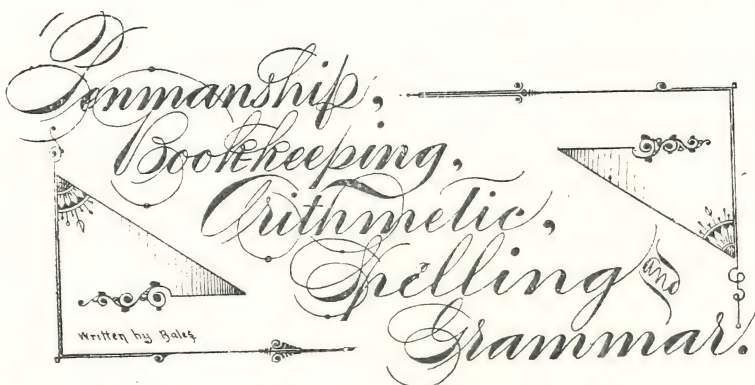 Penmanship,
Bookkeeping,
Arithmetic,
Spelling and
Grammar.
Written by Bales